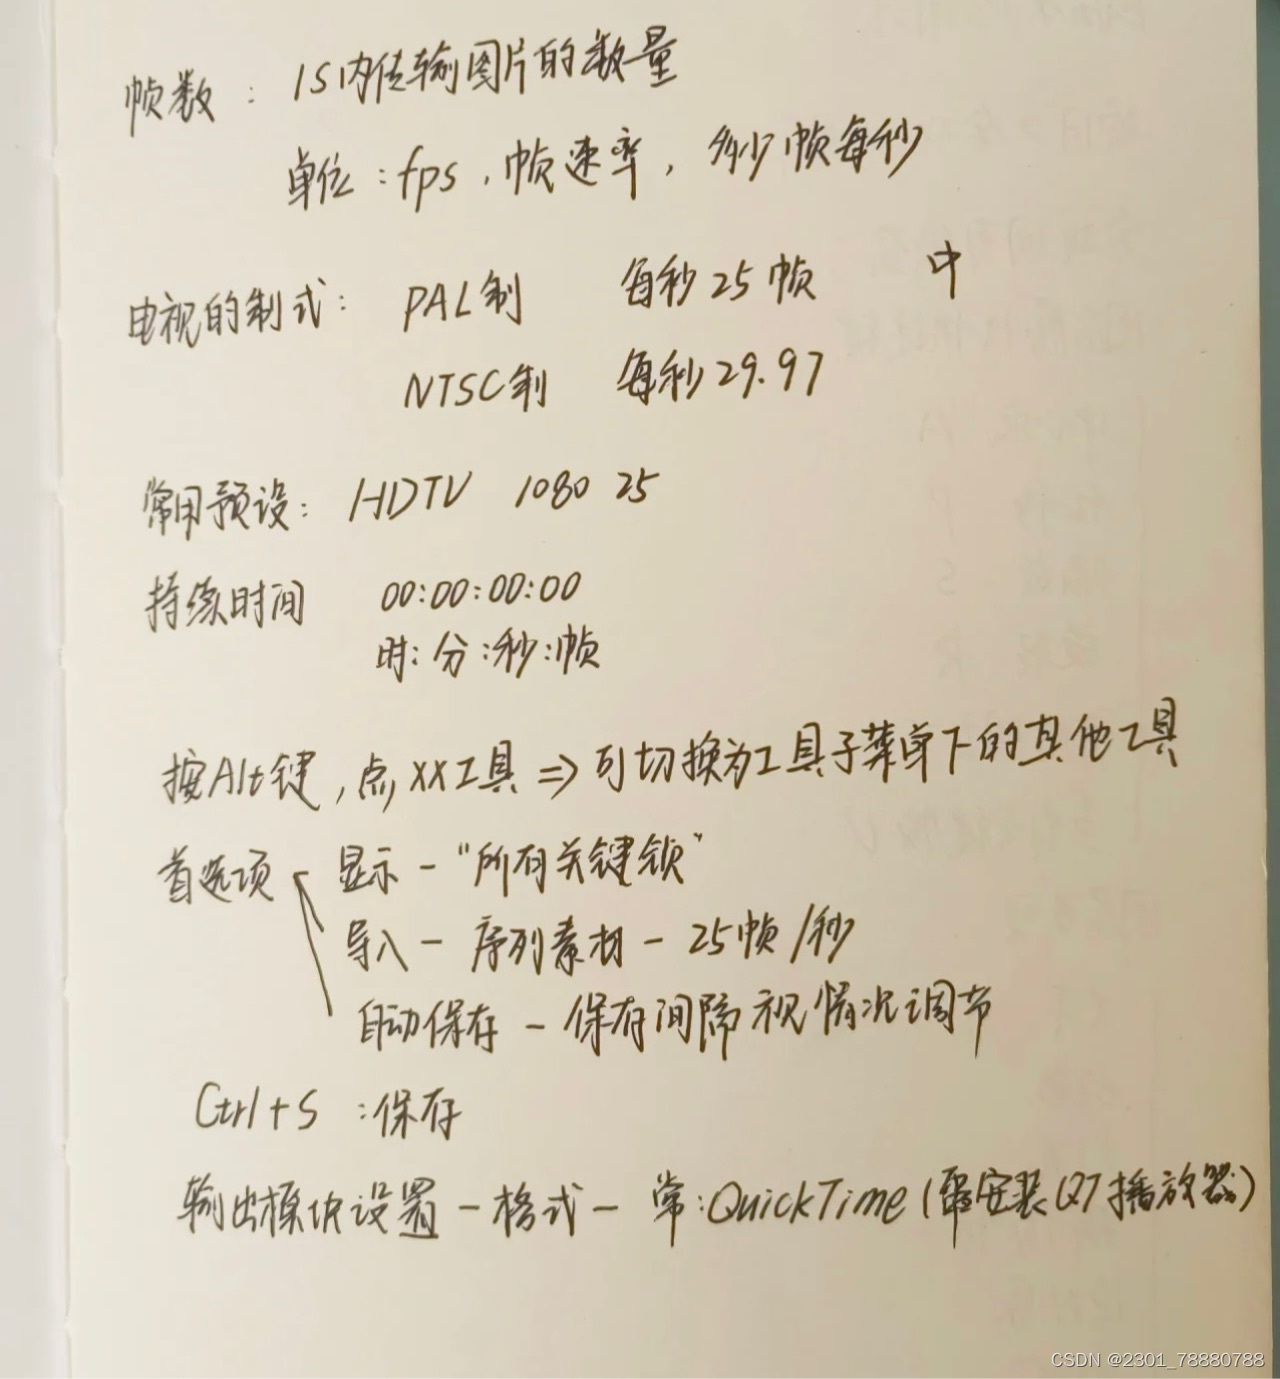 帧数：1S内传输图片的数量
单位：fps，帧速率，多少帧每秒
电视的制式：PAL制 每秒25帧 中
NTSC制 每秒29.97
常用预设：HDTV 1080 25
持续时间 00:00:00:00
时:分:秒:帧
按Alt键，点XX工具 => 可切换为工具子菜单下的其他工具
首选项 显示 - "所有关键锁"
导入 - 序列素材 - 25帧/秒
自动保存 - 保存间隔视情况调节
Ctrl+S ：保存
输出模块设置 - 格式 - 常：QuickTime（需安装QT播放器）
CSDN @2301_78880788